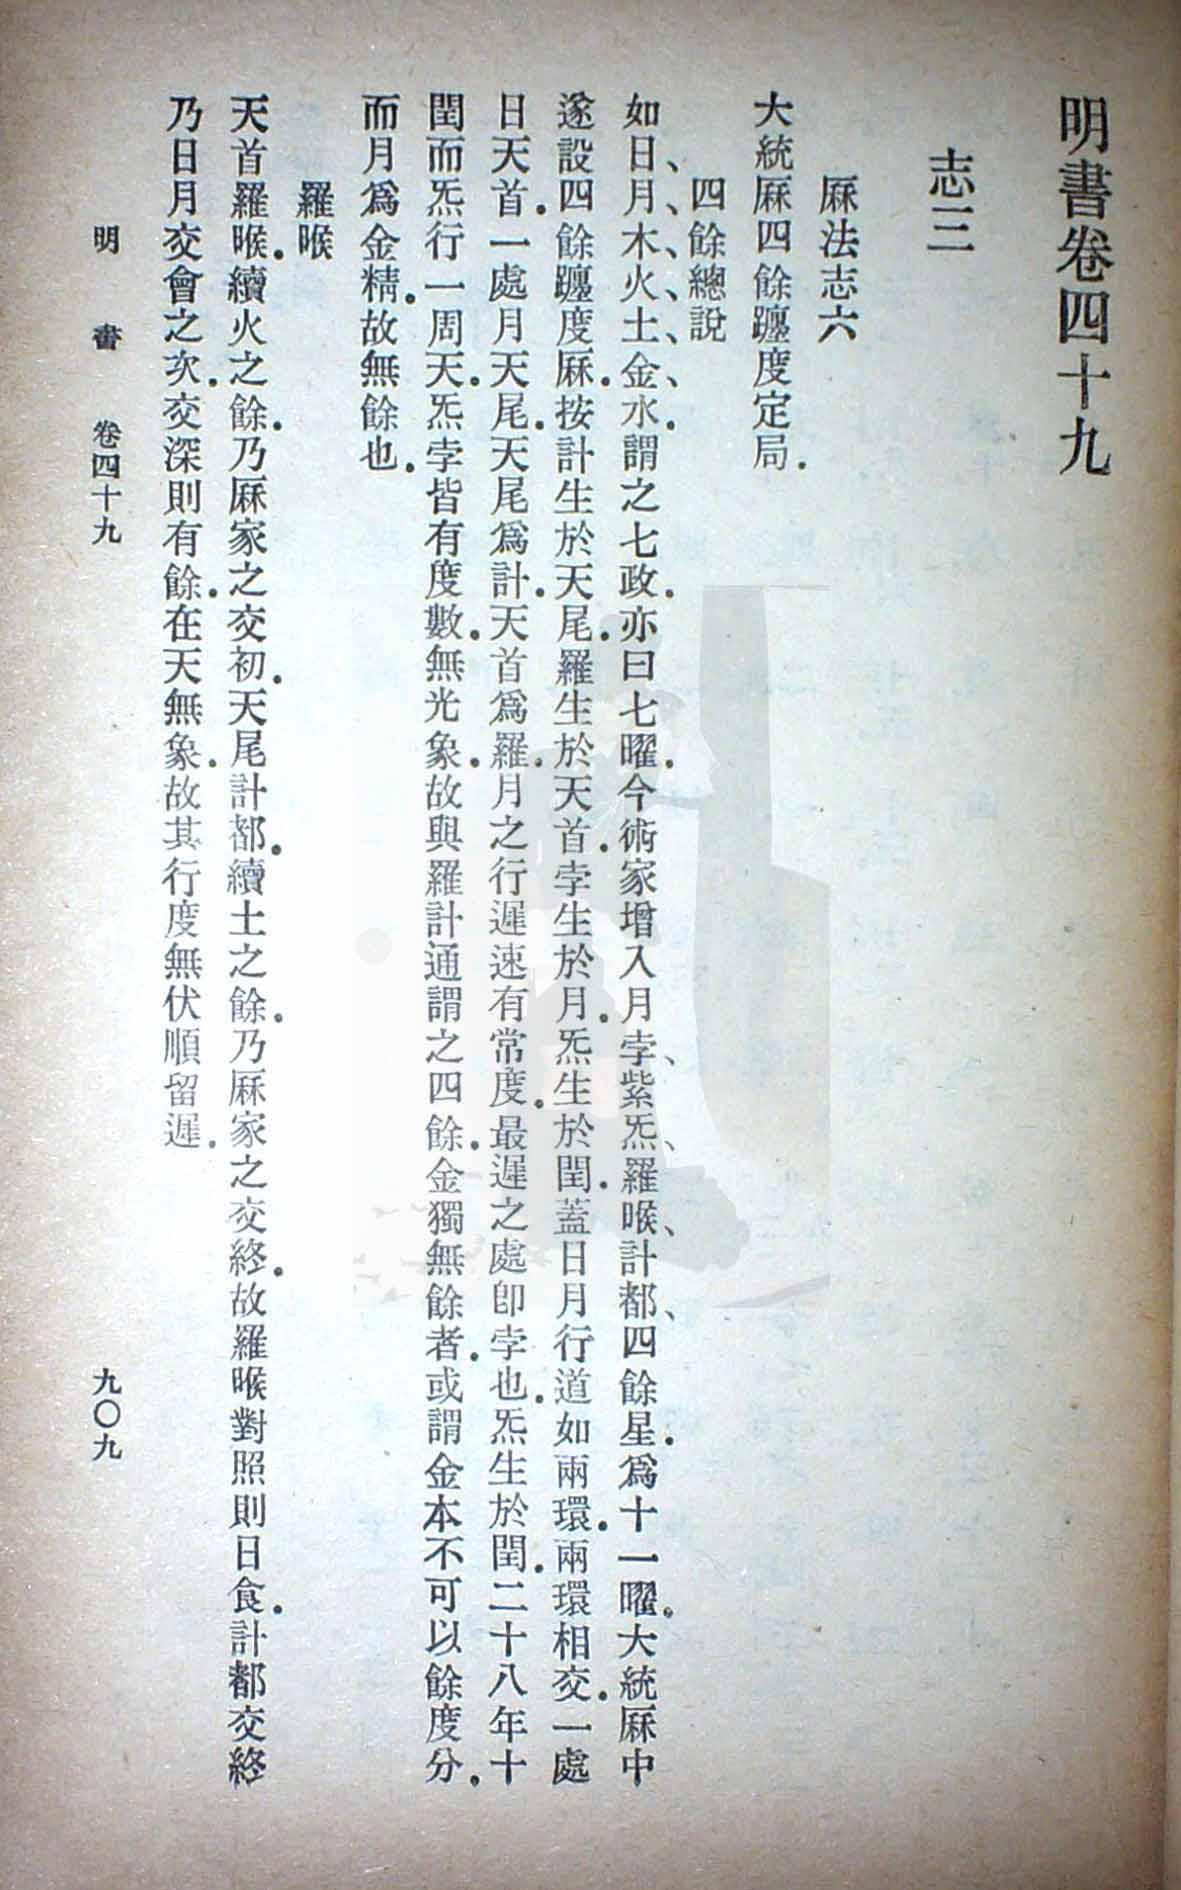 明書卷四十九
志三
厤法志六
大統厤四餘躔度定局.
四餘總說
如日、月、木、火、土、金、水.謂之七政.亦曰七曜.今術家增入月孛、紫炁、羅㬋、計都、四餘星.爲十一曜.大統厤中
遂設四餘躔度厤.按計生於天尾.羅生於天首.孛生於月.炁生於閏.蓋日月行道如兩環.兩環相交.一處
日天首.一處月天尾.天尾爲計.天首爲羅.月之行遲速有常度.最遲之處卽孛也.炁生於閏.二十八年十
閏而炁行一周天.炁孛皆有度數.無光象.故與羅計通謂之四餘.金獨無餘者.或謂金本不可以餘度分.
而月爲金精.故無餘也.
羅㬋
天首羅㬋.續火之餘.乃厤家之交初.天尾計都.續土之餘.乃厤家之交終.故羅㬋對照則日食.計都交終
乃日月交會之次.交深則有餘.在天無象.故其行度無伏順留遲.
明書 卷四十九 九〇九